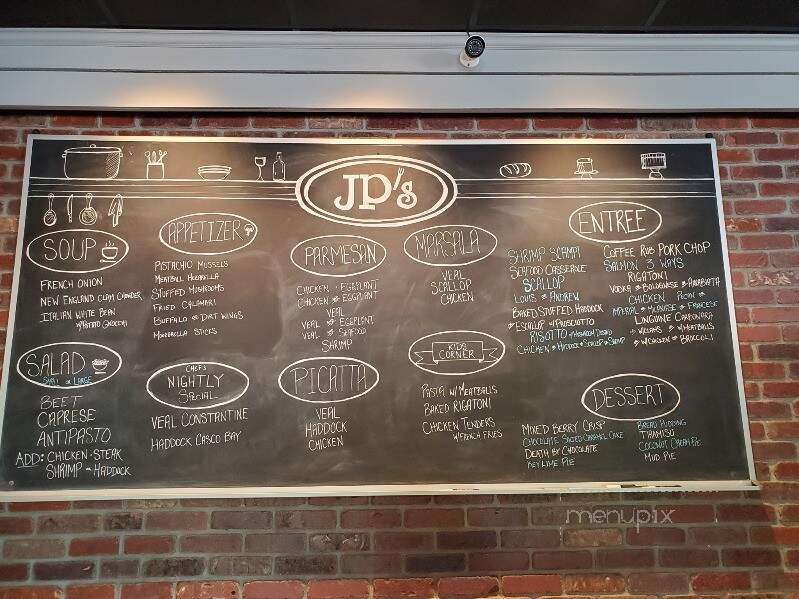 JP's
SOUP
FRENCH ONION
NEW ENGLAND CLAM CHOWDER
ITALIAN WHITE BEAN
W/POTATO GNOCCHI
APPETIZER
PISTACHIO MUSSELS
MEATBALL MOZZARELLA
STUFFED MUSHROOMS
FRIED CALAMARI
BUFFALO or DIRT WINGS
MOZZARELLA STICKS
PARMESAN
CHICKEN EGGPLANT
CHICKEN EGGPLANT
VEAL
VEAL EGGPLANT
VEAL SEAFOOD
SHRIMP
MARSALA
VEAL
SCALLOP
CHICKEN
ENTREE
SHRIMP SCAMPI
SEAFOOD CASSEROLE
SCALLOP
LOUIS ANDREW
BAKED STUFFED HADDOCK
SCALLOP W/ PROSCIUTTO
RISOTTO
CHICKEN HADDOCK SCALLOP SHRIMP
COFFEE RUB PORK CHOP
SALMON 3 WAYS
RIGATONI
VODKA BOLOGNESE ARRABIATA
CHICKEN
FRANCESE
LINGUINE CARBONARA
W/CLAMS W/MEATBALLS
W/CHICKEN BROCCOLI
SALAD
SMALL or LARGE
BEET
CAPRESE
ANTIPASTO
ADD: CHICKEN STEAK
SHRIMP HADDOCK
CHEF'S
NIGHTLY
SPECIAL
VEAL CONSTANTINE
HADDOCK CASCO BAY
PICATTA
VEAL
HADDOCK
CHICKEN
KIDS
CORNER
PASTA W/MEATBALLS
BAKED RIGATONI
CHICKEN TENDERS
W/FRENCH FRIES
DESSERT
MIXED BERRY CRISP
CHOCOLATE SALTED CARAMEL CAKE
DEATH BY CHOCOLATE
KEY LIME PIE
BREAD PUDDING
TIRAMISU
COCONUT CREAM PIE
MUD PIE
menupix